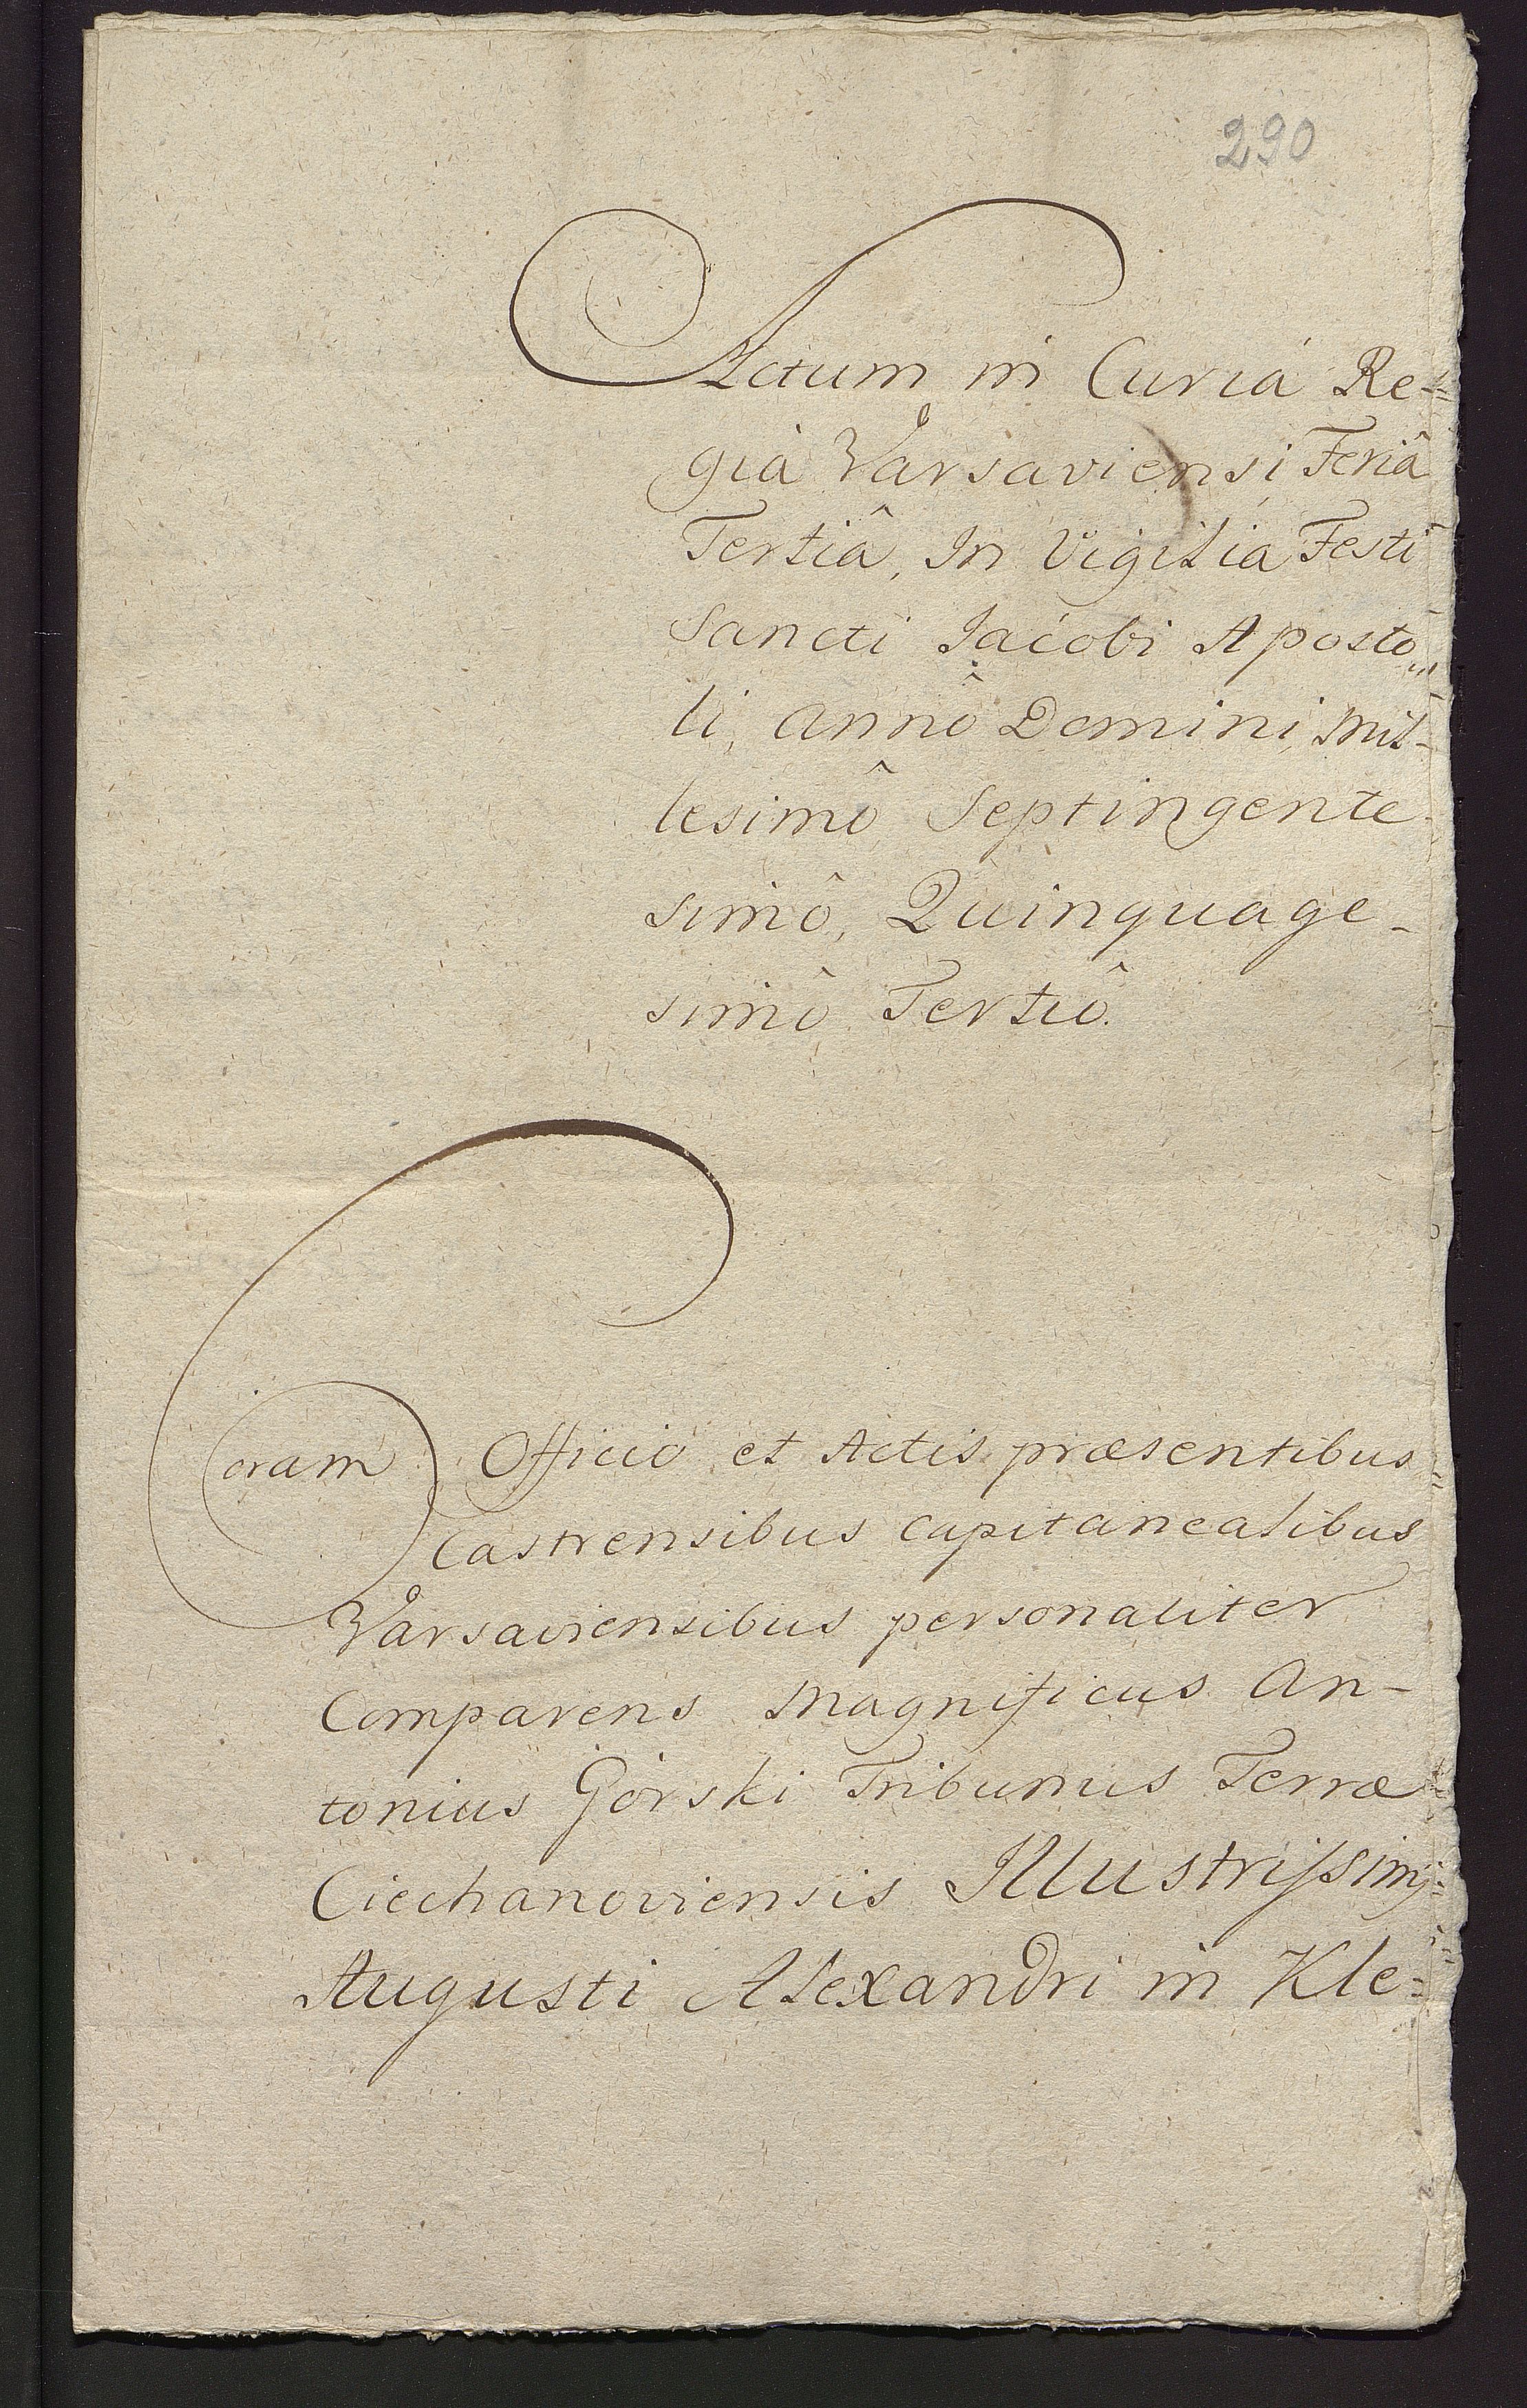 290
Actum in Curiá Re=
giâ Varsaviensi Feriâ
Tertiâ, In Vigilia Festi
Sancti Iacobi Aposto„
li, Annô Domini, Mil-
lesimô Septingente-
simô, Quinquage-
simô Tertiô.
Coram Officio et Actis præsentibus
Castrensibus Capitanealibus
Varsaviensibus personaliter
Comparens Magnificus An-
tonius Gorski Tribunus Terræ
Ciechanoviensis Illustrissimi
Augusti Alexandri in Kle=